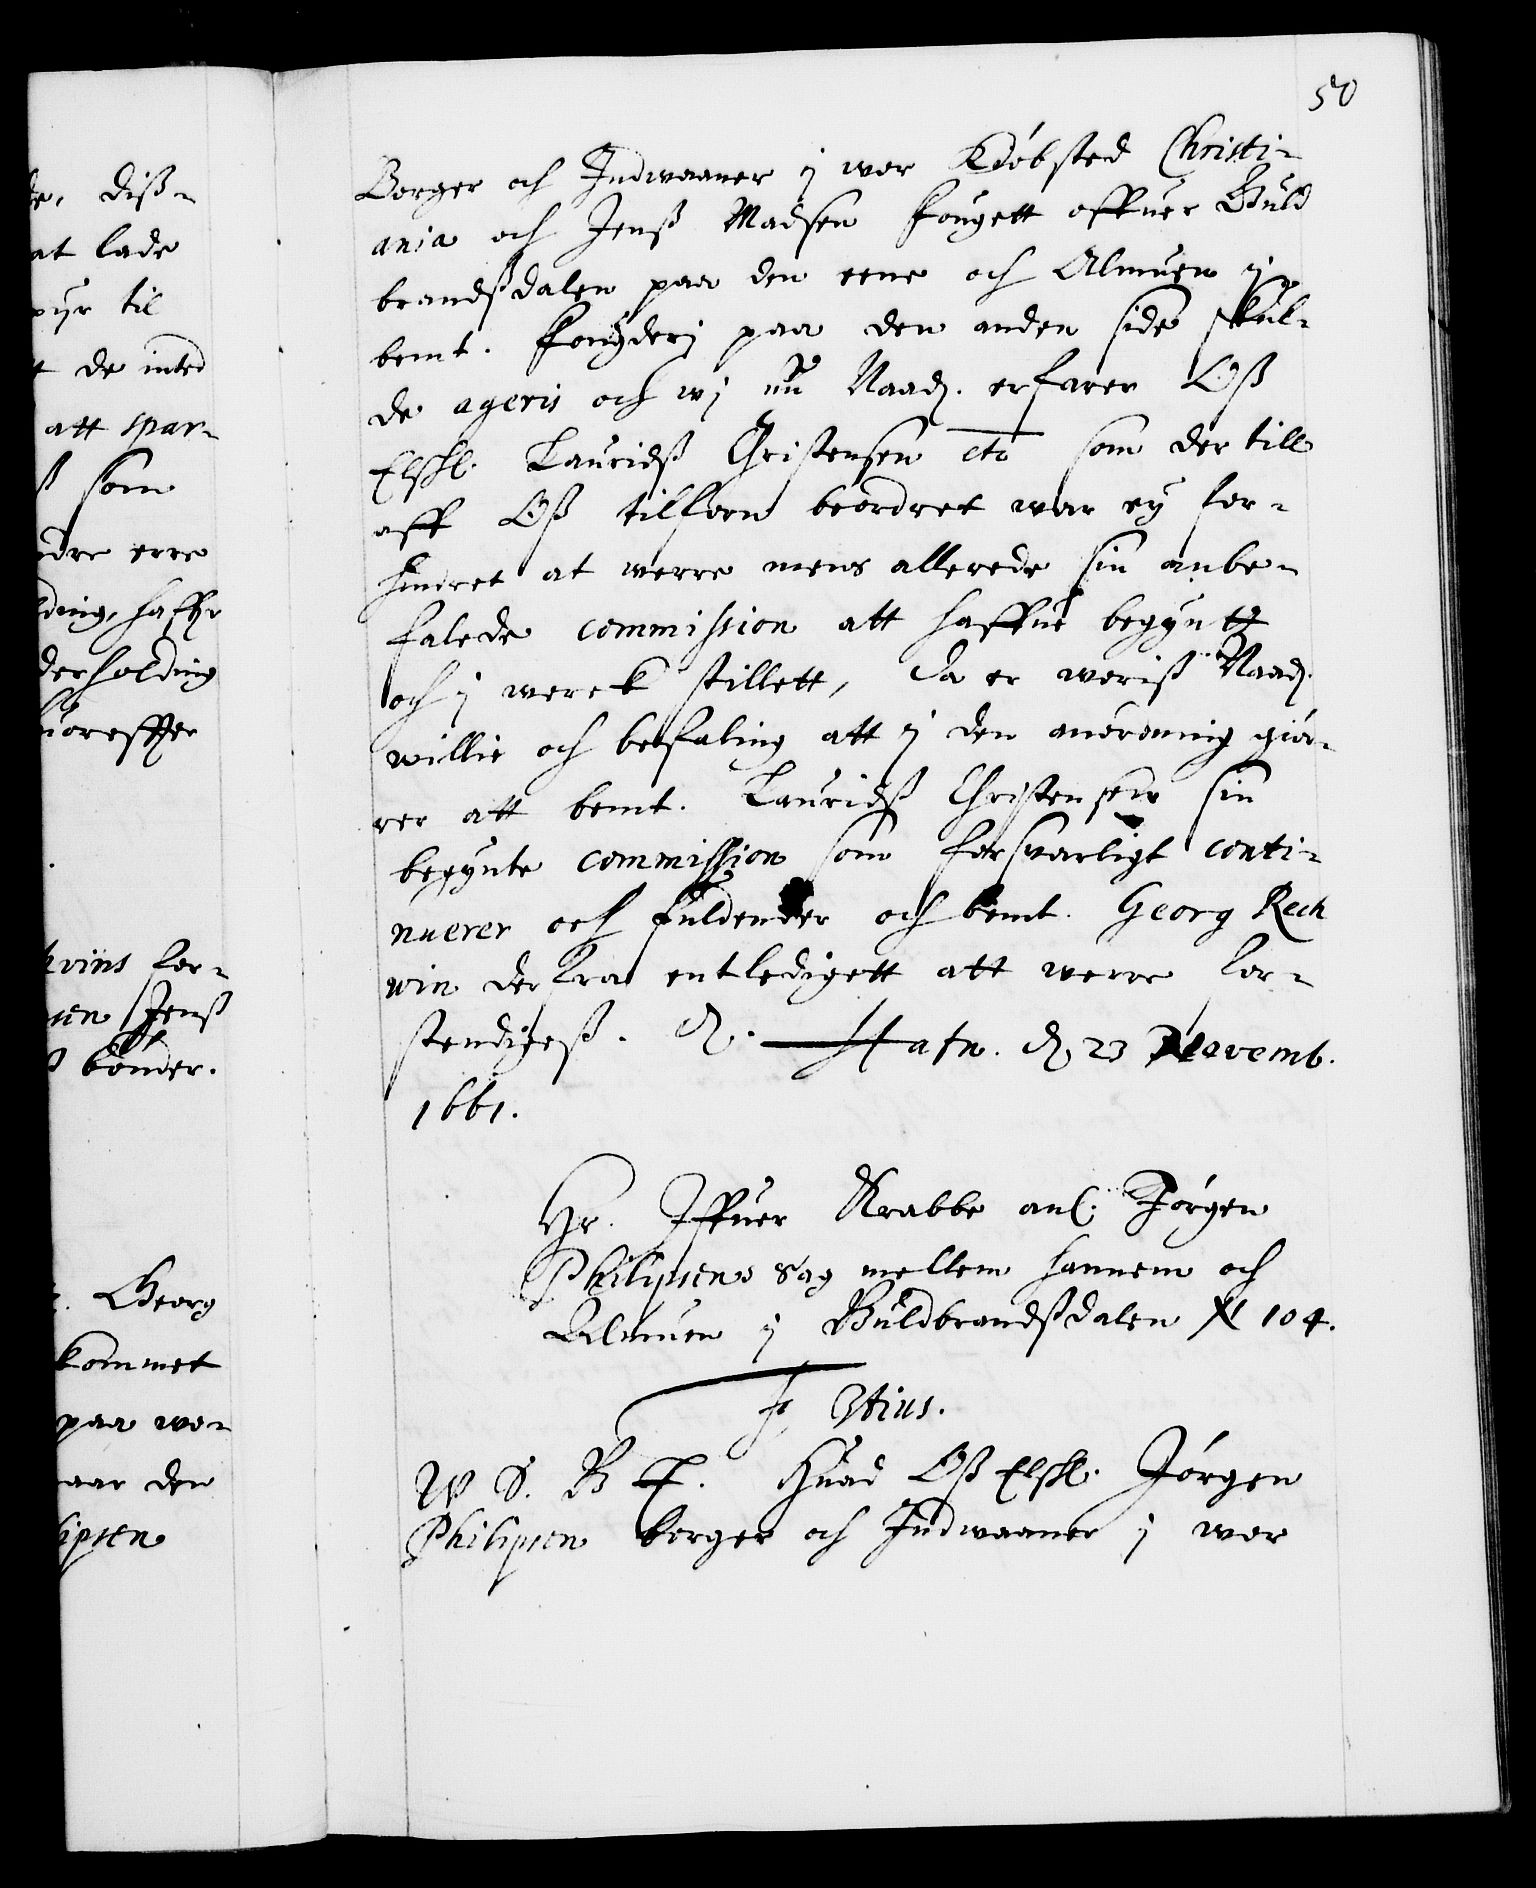 50
de, diß-
at lade
pyr til
t de inted
att spar-
ß som
erre
holding, haffr
derholding
huoreffter
kvins for-
sen Jenß
bønder.
Georg
kommet
paa wo-
aar den
lipsen
Borger och Indwaaner i wor Kiøbsted Christi-
ania och Jenß Madsen fougett offuer Guld
brandßdalen paa den eene och Almuen i
bemt. fougderj paa den anden side skul-
de ageris och wj nu Naadj. erfarer Oß
Elskl. Lauridß Christensen etc som der till
aff Oß tilforn beordret war ey for-
hindret at werre mens allerede sin anbe-
falede commission att haffue begyntt
och i werck stillett, Da er woriß Naadj.
willie och befaling att i den anordning giør-
rer att bemt. Lauridß Christensen sin
begynte commission som forsvarligt conti-
nuerer och fuldender och bemt. Georg Reck
win derfra entledigett att werre for-
stendigeß. D. Hafn. d. 23 Novemb.
1661.
Hr. Iffuer Krabbe anl. Jørgen
Philipsens sag mellem hannem och
Almuen i Guldbrandßdalen N 104.
F 3tius.
W S. B T. Huad Oß Elskl. Jørgen
Philipsen borger och Indwaaner i wor